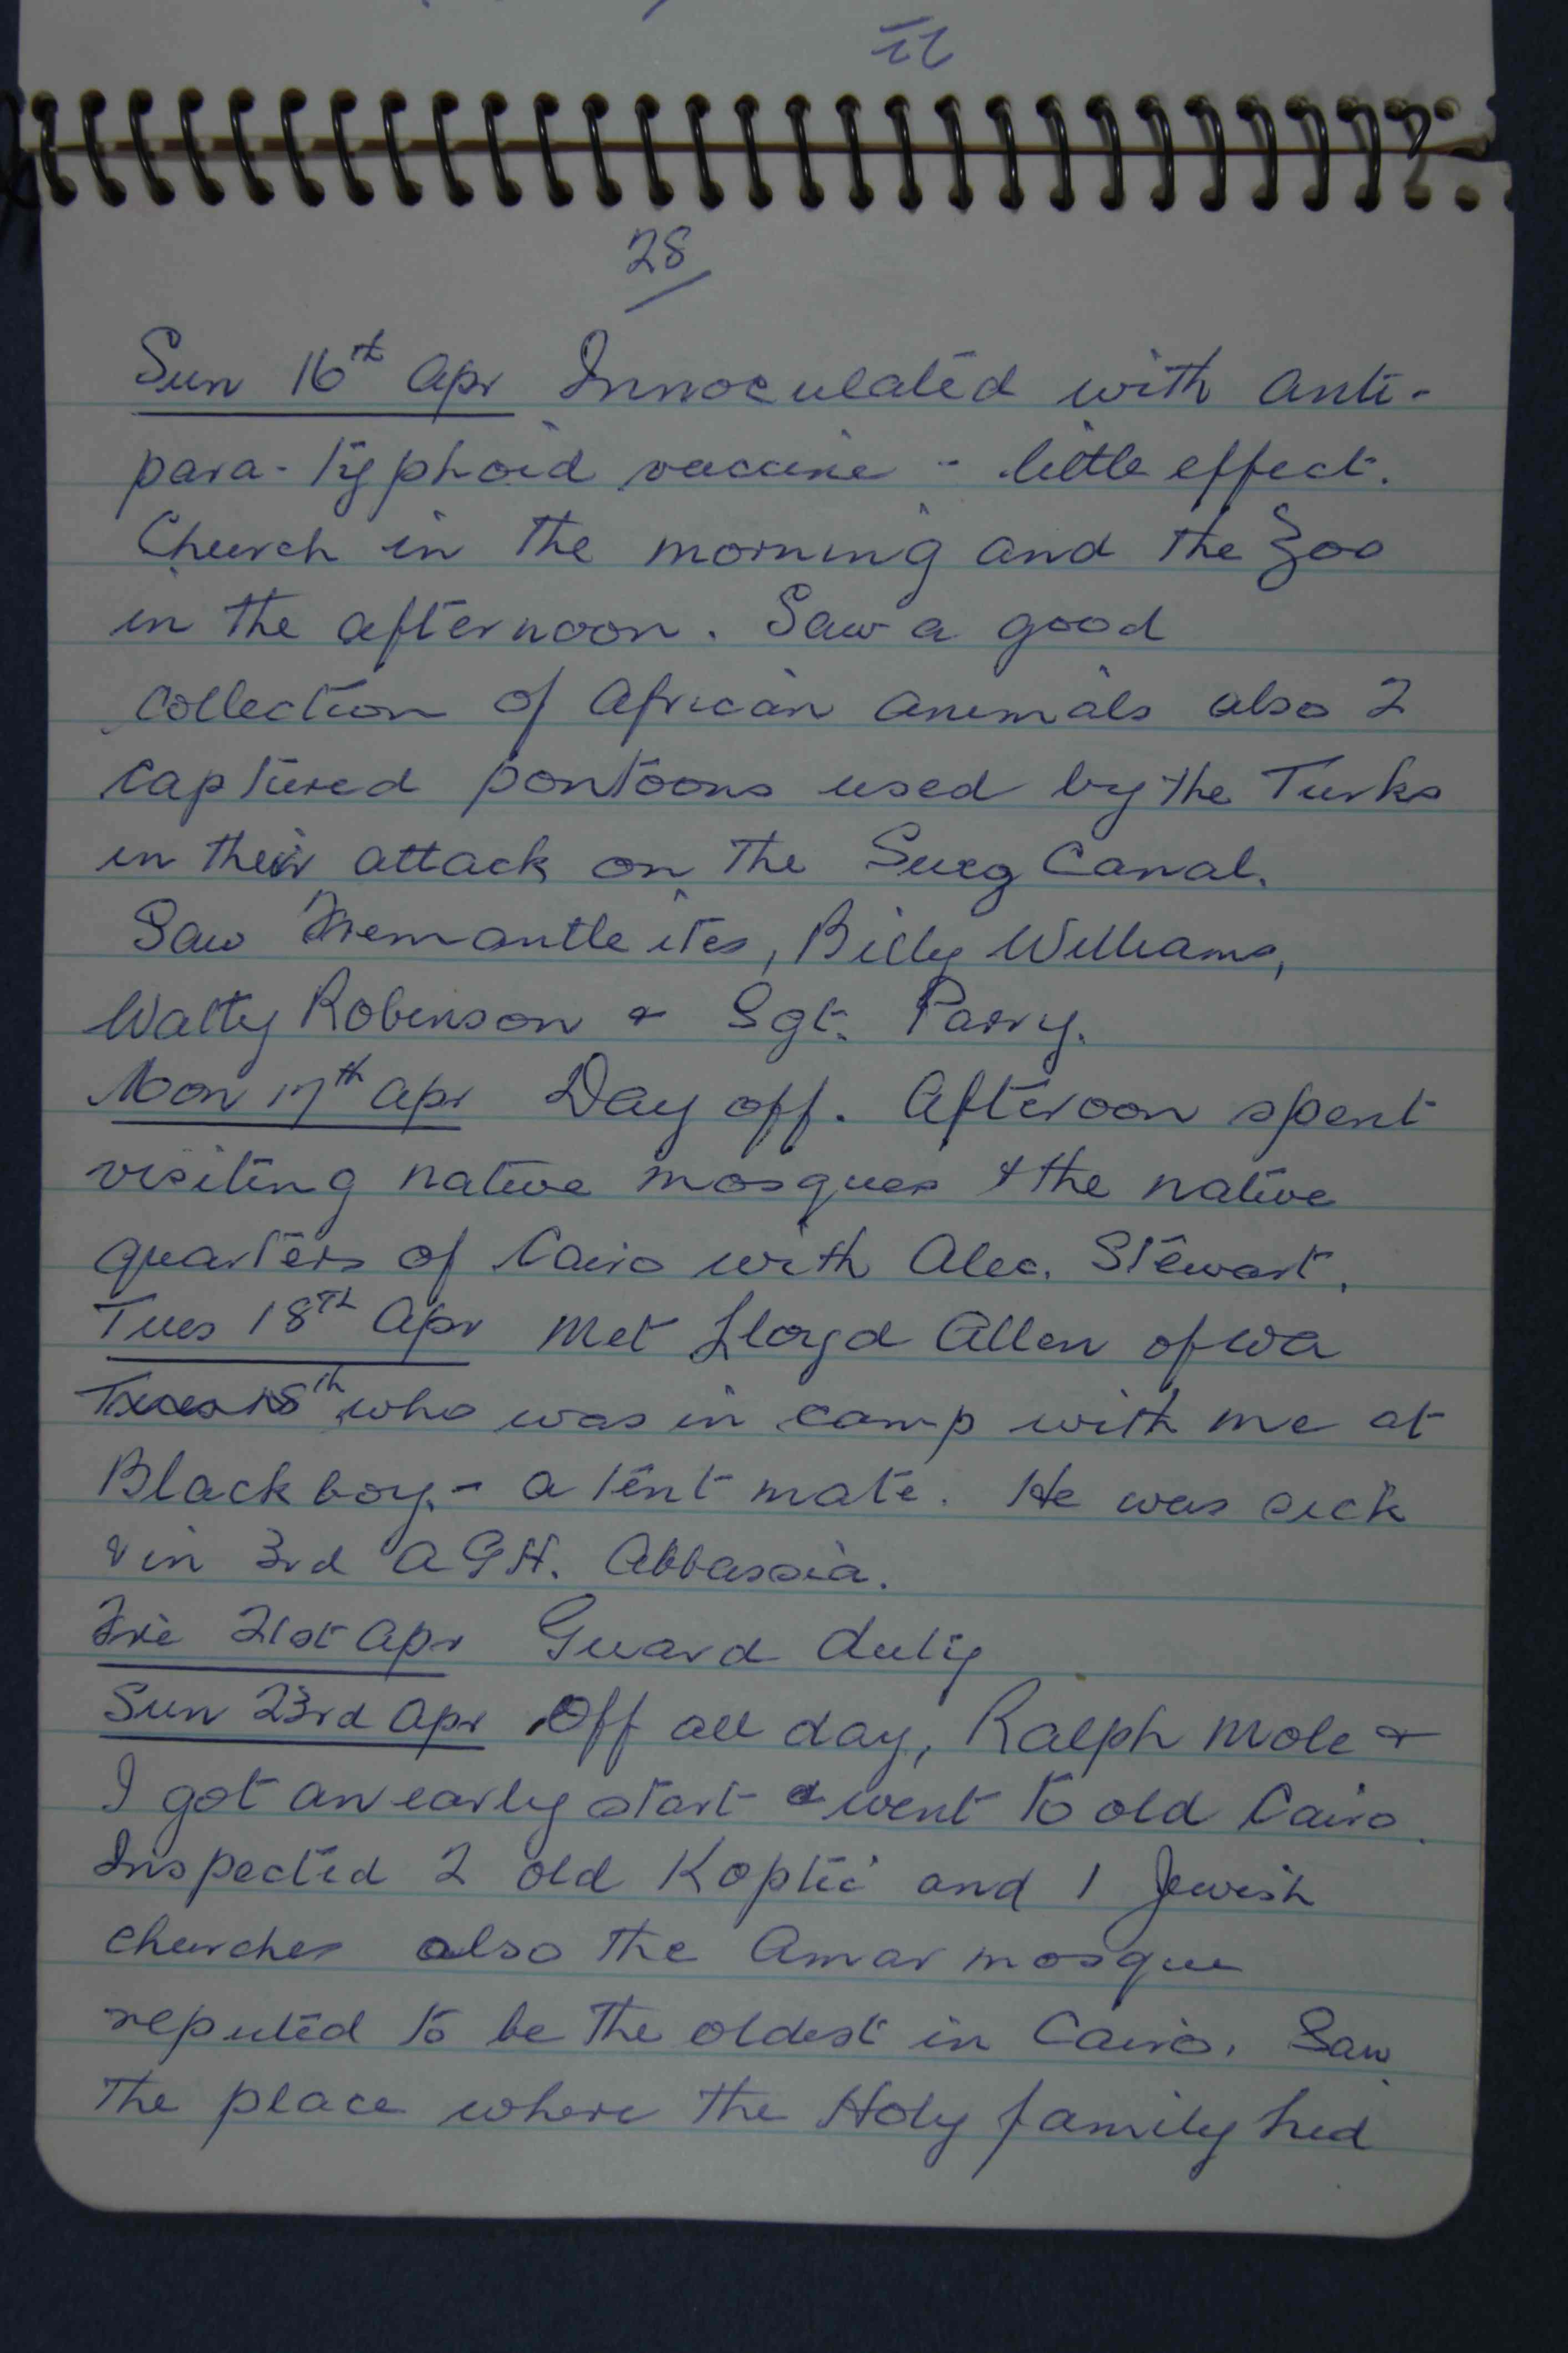 28
Sun 16th Apr Innoculated with anti-
para-typhoid vaccine - little effect.
Church in the morning and the Zoo
in the afternoon. Saw a good
collection of African animals also 2
captured pontoons used by the Turks
in their attack on the Suez Canal.
Saw Fremantleites, Billy Williams,
Watty Robinson & Sgt. Parry.
Mon 17th Apr Day off. Afteroon spent
visiting native mosques & the native
quarters of Cairo with Alec. Stewart.
Tues 18th Apr Met Lloyd Allen of WA
Tues 18th who was in camp with me at
Blackboy - a tent mate. He was sick
& in 3rd A G H. Abbassia.
Fri 21st Apr Guard duty
Sun 23rd Apr Off all day, Ralph Mole &
I got an early start & went to old Cairo.
Inspected 2 old Koptic and 1 Jewish
churches also the Amar mosque
reputed to be the oldest in Cairo. Saw
the place where the Holy family hid